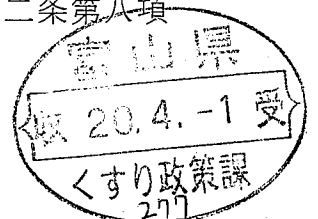 二条第八項
富山県
収 20.4.-1 受
くすり政策課
277